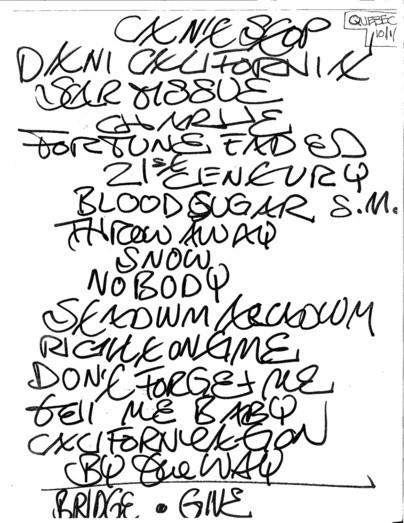 QUEBEC
10/11
CAN'T STOP
DANI CALIFORNIA
SCAR TISSUE
CHARLIE
FORTUNE FADED
21st CENTURY
BLOOD SUGAR S.M.
THROW AWAY
SNOW
NOBODY
STADIUM ARCADIUM
RIGHT ON TIME
DON'T FORGET ME
TELL ME BABY
CALIFORNICATION
BY THE WAY
BRIDGE • GIVE